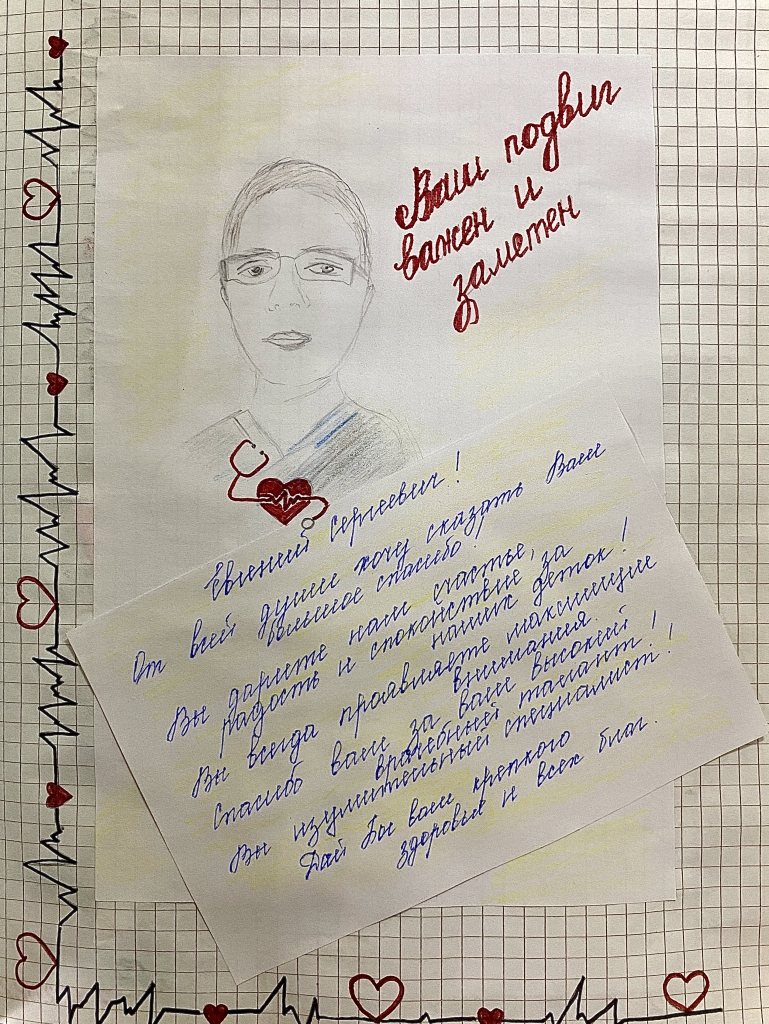 Ваш подвиг
важен и
заметен
Евгений Сергеевич!
От всей души хочу сказать Вам
большое спасибо!
Вы дарите нам счастье,
радость и спокойствие за
наших деток!
Вы всегда проявляете максимум
внимания.
Спасибо вам за ваш высокий
врачебный талант!
Вы изумительный специалист!
Дай Бы вам крепкого
здоровья и всех благ.